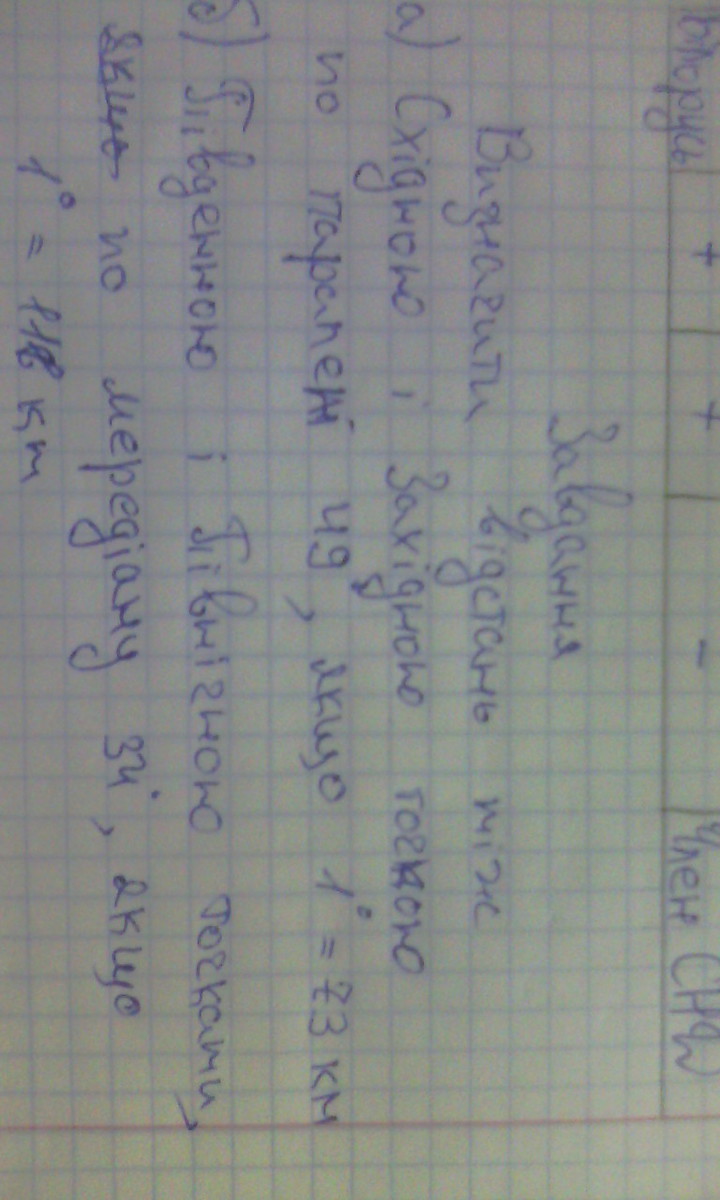 Білорусь + + - Член СНД
Завдання
Визначити відстань між
а) Східною і Західною точкою
по паралелі 49, якщо 1° = 73 км
б) Південною і Північною точками,
якщо по мередіану 34°, якщо
1° = 111 км